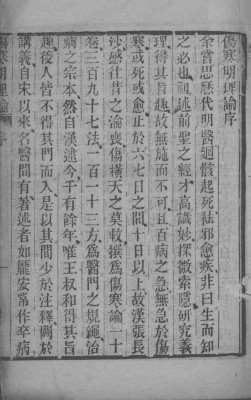 傷寒明理論序
余嘗思歷代明醫迴骸起死祛邪愈疾非曰生而知
之必也祖述前聖之經才高識妙探微索隱研究義
理得其旨趣故無施而不可且百病之急無急於傷
寒或死或愈止於六七日之間十日以上故漢張長
沙感往昔之淪喪傷橫夭之莫救撰為傷寒論一十
卷三百九十七法一百一十三方為醫門之規繩治
病之宗本然自漢逮今千有餘年唯王叔和得其旨
趣後人皆不得其門而入是以其間少於注釋闕於
講義自宋以來名醫間有著述者如龐安常作卒病
傷寒明理論 序